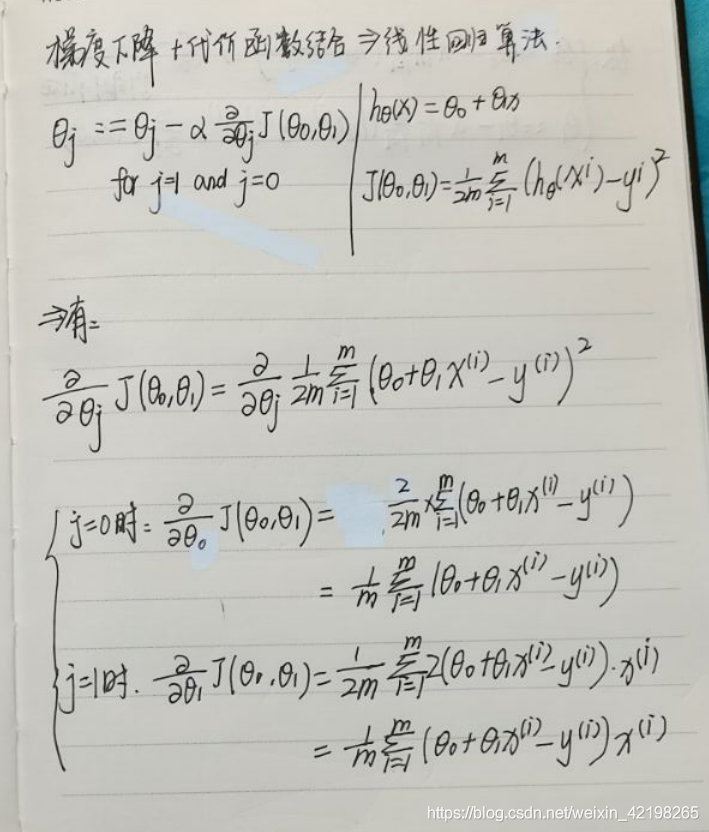 梯度下降+代价函数结合⇒线性回归算法.
θj := θj - α ∂/∂θj J(θ0,θ1)
for j=1 and j=0
hθ(x) = θ0 + θ1x
J(θ0,θ1) = 1/2m Σ_{i=1}^{m} (hθ(x^i) - y^i)^2
⇒有:
∂/∂θj J(θ0,θ1) = ∂/∂θj 1/2m Σ_{i=1}^{m} (θ0+θ1x^(i) - y^(i))^2
j=0时: ∂/∂θ0 J(θ0,θ1) = 2/2m × Σ_{i=1}^{m} (θ0+θ1x^(i) - y^(i))
= 1/m Σ_{i=1}^{m} (θ0+θ1x^(i) - y^(i))
j=1时. ∂/∂θ1 J(θ0,θ1) = 1/2m Σ_{i=1}^{m} 2(θ0+θ1x^(i) - y^(i))·x^(i)
= 1/m Σ_{i=1}^{m} (θ0+θ1x^(i) - y^(i))x^(i)
https://blog.csdn.net/weixin_42198265